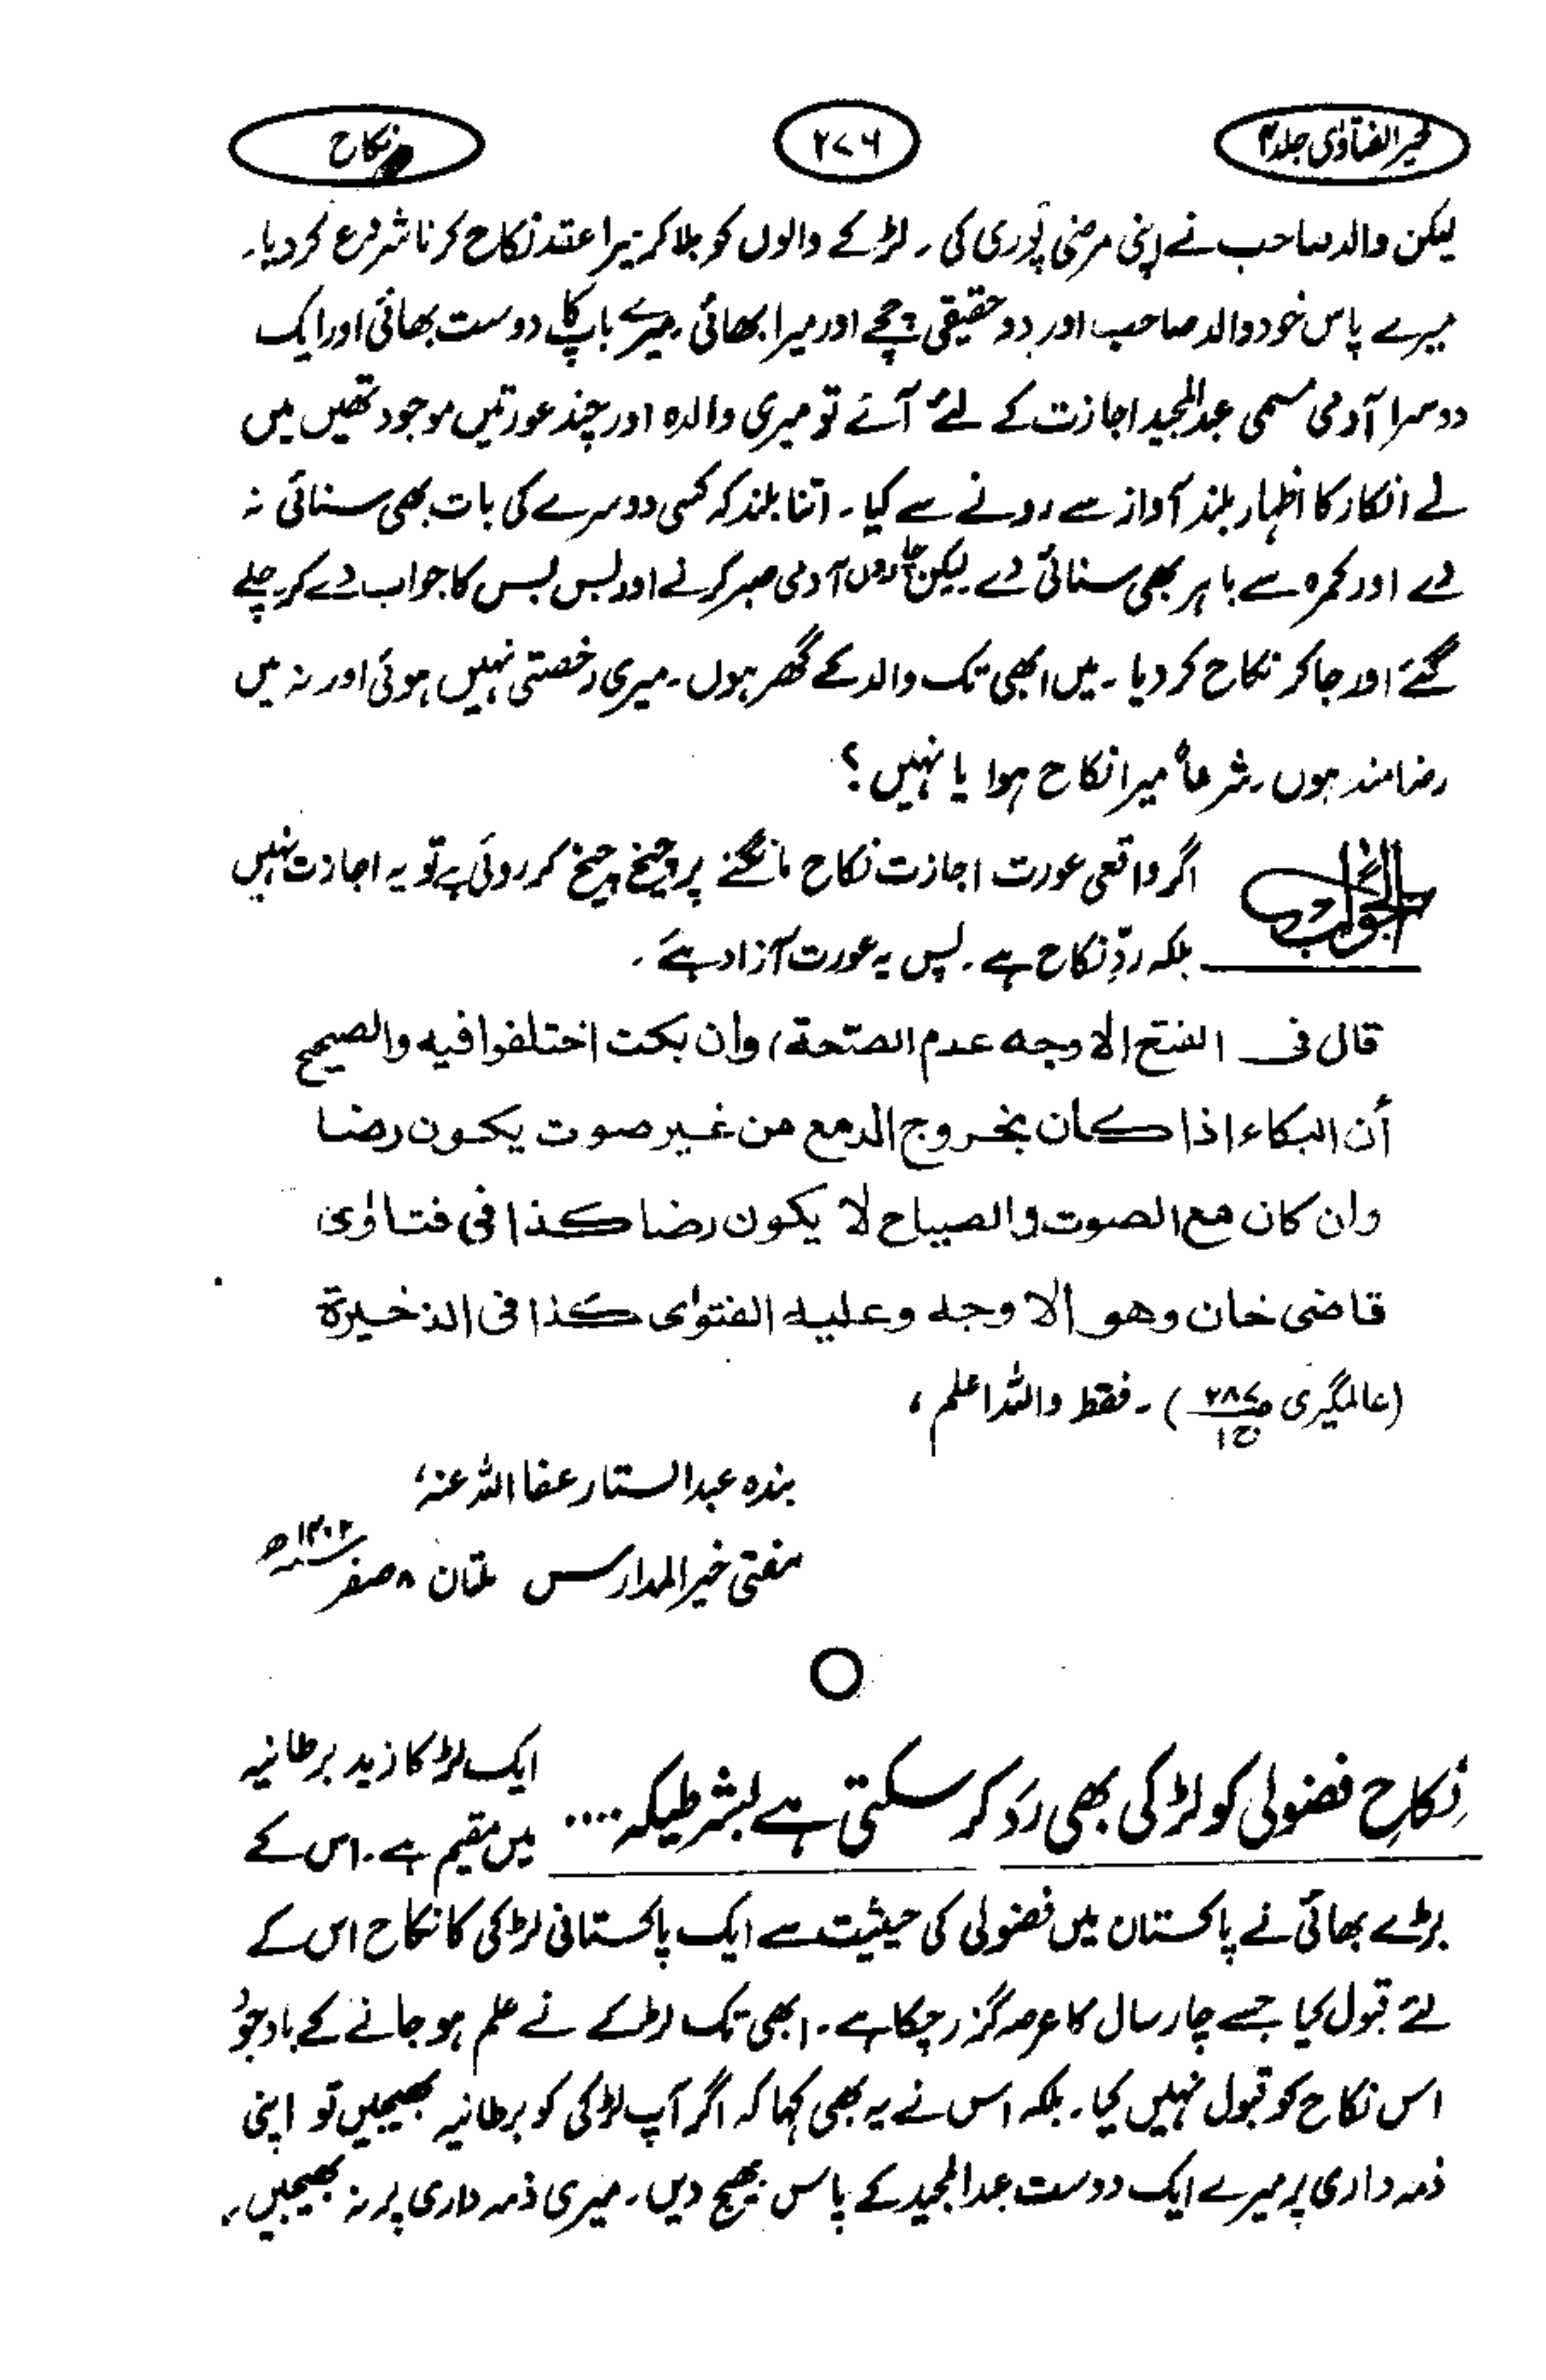 خیر الفتاوی جلد ۴
۲۷۶
نکاح
لیکن والد صاحب نے اپنی مرضی پوری کی۔ لڑکے والوں کو بلا کر میرا عقد نکاح کرنا شروع کر دیا۔
میرے پاس خود والد صاحب اور دو حقیقی چچے اور میرا بھائی، میرے باپ کا دوست بھائی اور ایک
دوسرا آدمی مسمی عبدالمجید اجازت کے لئے آئے تو میری والدہ اور چند عورتیں موجود تھیں میں
نے انکار کا اظہار بلند آواز سے رونے سے کیا۔ اتنا بلند کہ کسی دوسرے کی بات بھی سنائی نہ
دے اور کمرہ سے باہر بھی سنائی دے لیکن آدمی صبر کرنے اور بس بس کا جواب دے کر چلے
گئے اور جا کر نکاح کر دیا۔ میں ابھی تک والد کے گھر ہوں۔ میری رخصتی نہیں ہوئی اور نہ میں
رضامند ہوں۔ شرعاً میرا نکاح ہوا یا نہیں؟
الجواب
اگر واقعی عورت اجازت نکاح مانگنے پر چیخ چیخ کر روئی ہے تو یہ اجازت نہیں
بلکہ ردِّ نکاح ہے۔ پس یہ عورت آزاد ہے۔
قال فی الفتح الاوجه عدم الصحة) وان بکت اختلفوا فیه والصحیح
أن البکاء اذا کان بخروج الدمع من غیر صوت یکون رضا
وان کان مع الصوت والصیاح لا یکون رضا کذا فی فتاوٰی
قاضی خان وهو الاوجه وعلیه الفتوٰی کذا فی الذخیرة
(عالمگیری ص۲۸۷ ج۱)۔ فقط واللہ اعلم،
بندہ عبدالستار عفا اللہ عنہ،
مفتی خیر المدارس ملتان ۸ صفر ۱۴۰۲ھ
نکاحِ فضولی کو لڑکی بھی رَد کر سکتی ہے بشرطیکہ ....
ایک لڑکا زید برطانیہ
میں مقیم ہے۔ اس کے
بڑے بھائی نے پاکستان میں فضولی کی حیثیت سے ایک پاکستانی لڑکی کا نکاح اس کے
لئے قبول کیا جسے چار سال کا عرصہ گزر چکا ہے۔ ابھی تک لڑکے نے علم ہو جانے کے باوجود
اس نکاح کو قبول نہیں کیا۔ بلکہ اس نے یہ بھی کہا کہ اگر آپ لڑکی کو برطانیہ بھیجیں تو اپنی
ذمہ داری پر میرے ایک دوست عبدالمجید کے پاس بھیج دیں۔ میری ذمہ داری پر نہ بھیجیں۔